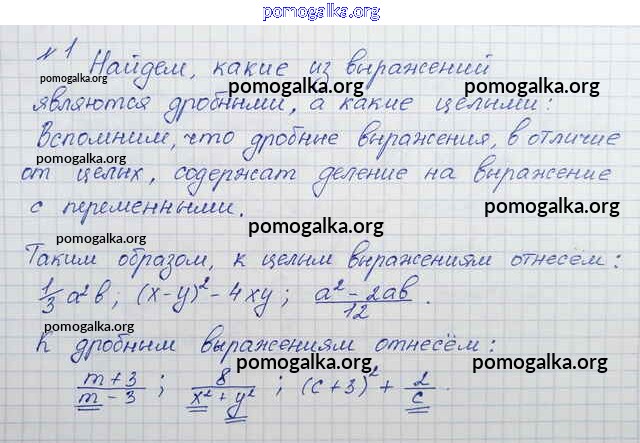 pomogalka.org
№1 Найдем, какие из выражений
pomogalka.org pomogalka.org pomogalka.org
являются дробными, а какие целыми:
Вспомним, что дробные выражения, в отличие
pomogalka.org
от целых, содержат деление на выражение
с переменными.
pomogalka.org pomogalka.org
pomogalka.org
Таким образом, к целым выражениям отнесём:
1/3 a²b; (x-y)² - 4xy; (a² - 2ab)/12.
pomogalka.org
К дробным выражениям отнесём:
pomogalka.org pomogalka.org
(m+3)/(m-3); 8/(x²+y²); (c+3)² + 2/c.